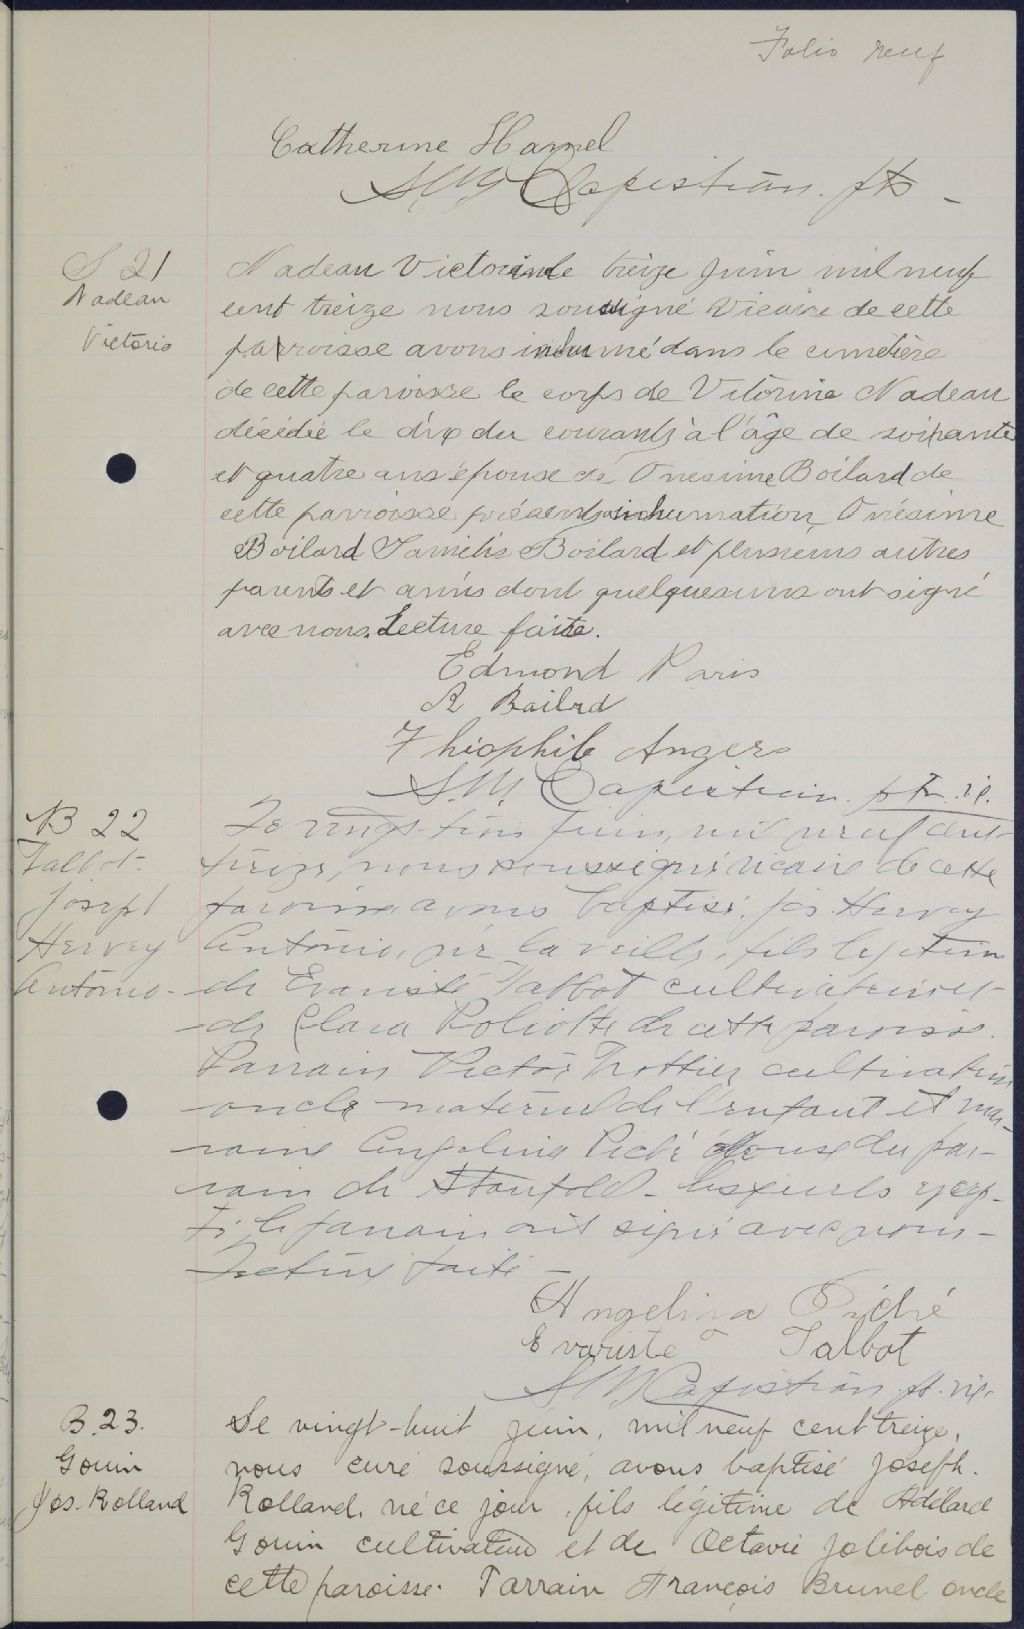 Folio neuf
Catherine Hamel
S.M. Capistran. ptr
S 21
Nadeau
Victoria
Nadeau Victorine le treize juin mil neuf
cent treize nous soussigné Vicaire de cette
parroisse avons inhumé dans le cimetière
de cette paroisse le corps de Vitorine Nadeau
décédée le dix du courant à l'âge de soixante
et quatre ans épouse de Onesime Boilard de
cette parroisse présents inhumation Onésime
Boilard Boilard et plusieurs autres
parents et amis dont quelquesuns ont signé
avec nous. Lecture faite.
Edmond Paris
A Boilrd
Théophile Angers
S.M. Capistran ptr. vic.
B 22
Talbot-
Joseph
Hervey
Antonio-
Le vingt-trois juin, mil neuf cent
treize, nous soussigné vicaire de cette
paroisse avons baptisé. Jos. Hervey
Antonio, né la veille, fils legitime
de Evariste Talbot cultivateur et
de Clara Poliotte de cette paroisse.
Parrain Victor Trottier cultivateur
oncle maternel de l'enfant et mar-
raine Angelina Piché épouse du par-
rain de Stanfold - lesquels excep-
té le parrain ont signé avec nous -
Lecture faite -
Angelina Piché
Evariste Talbot
S M Capistran pt. vic.
B. 23.
Gouin
Jos. Rolland
Le vingt-huit juin, mil neuf cent treize,
nous curé soussigné, avons baptisé Joseph.
Rolland, né ce jour, fils légitime de Adélard
Gouin cultivateur et de Octavie Jolibois de
cette paroisse. Parrain François Brunel oncle